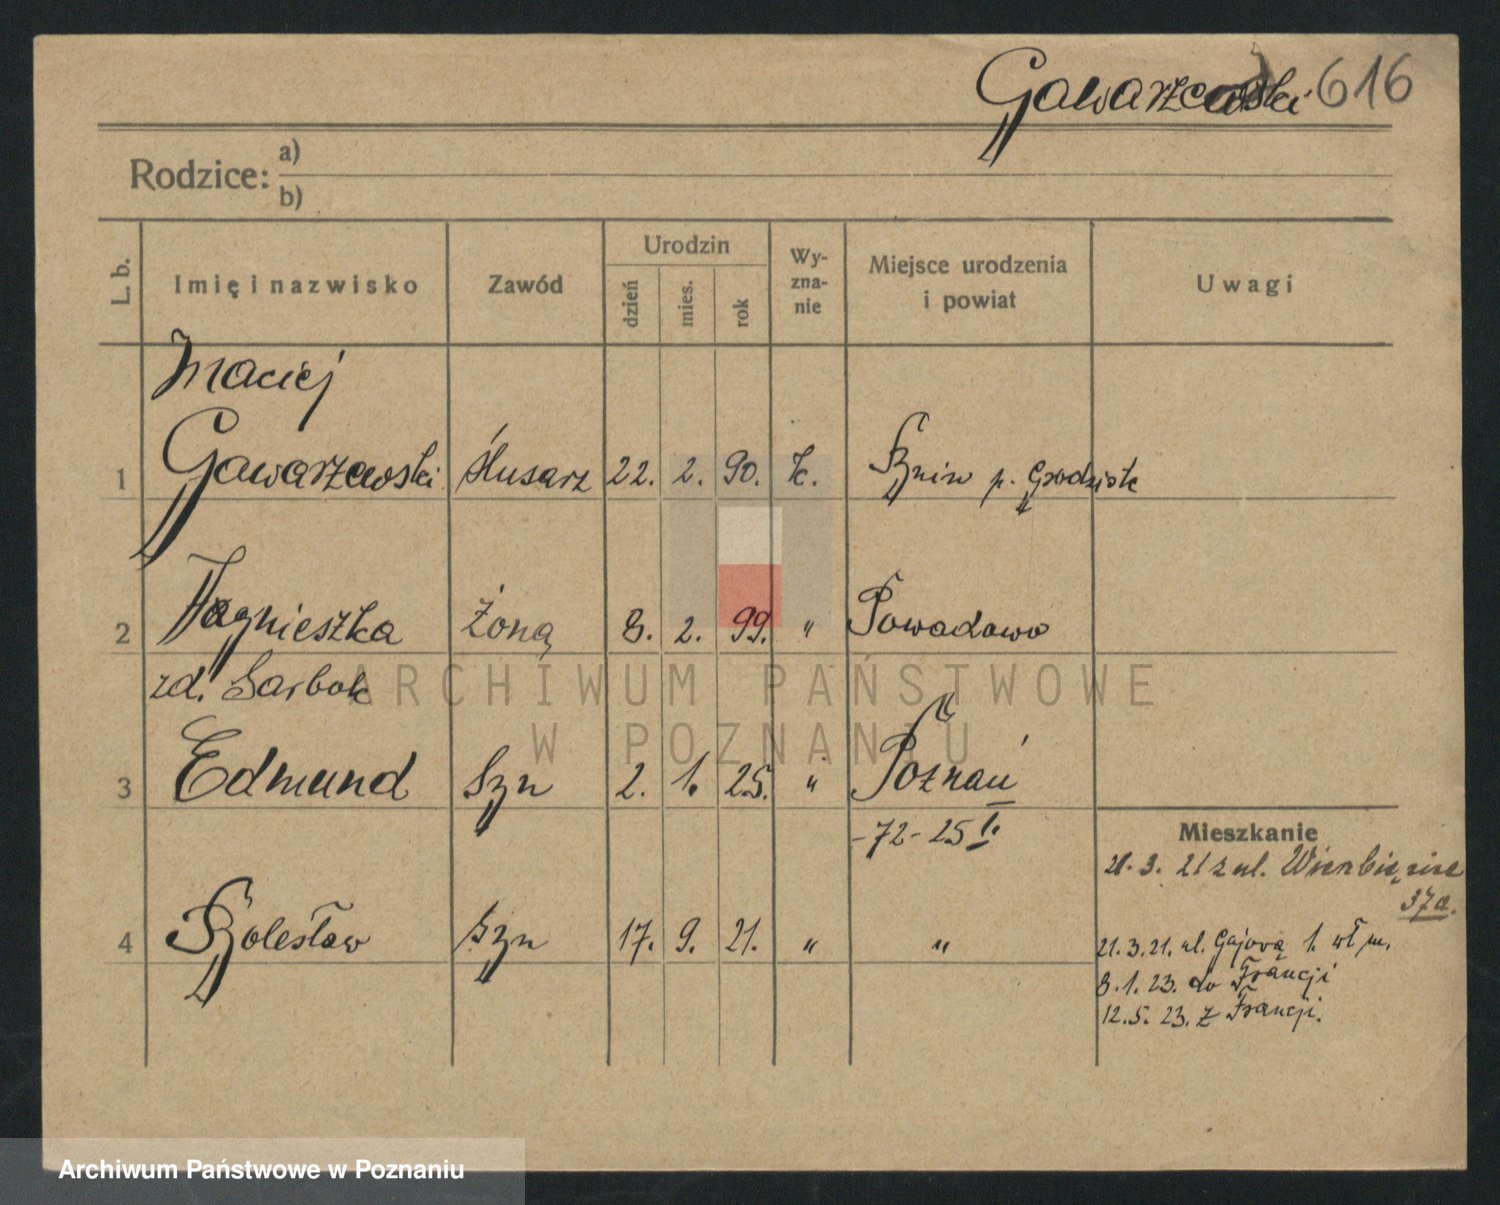 Gawarzewski 616
Rodzice: a)
b)
L. b. Imię i nazwisko Zawód Urodzin dzień mies. rok Wy-zna-nie Miejsce urodzenia i powiat Uwagi
Maciej
1 Gawarzewski Ślusarz 22. 2. 90. k. p. Grodzisk
2 Agnieszka Żona 8. 2. 99. " Powadowo
zd. Sarbok
ARCHIWUM PAŃSTWOWE
W POZNANIU
3 Edmund Syn 2. 1. 25. " Poznań
-72- 25 I.
Mieszkanie
21. 3. 21 z ul. Wierzbięcice
37a.
4 Bolesław Syn 17. 9. 21. " "
21. 3. 21. ul. Gajová 1. wł m.
8. 1. 23. do Francji
12. 5. 23. z Francji.
Archiwum Państwowe w Poznaniu